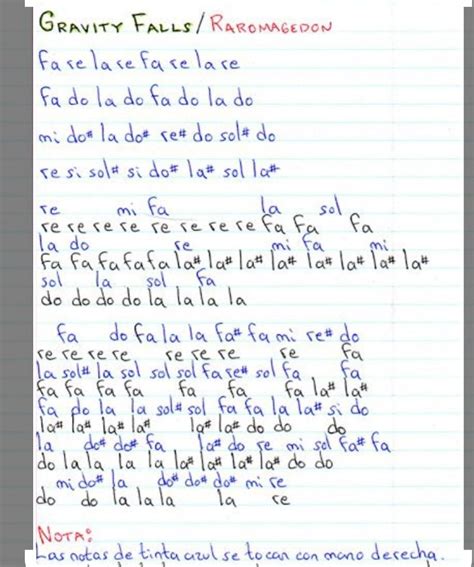 GRAVITY FALLS/RAROMAGEDON
fa re la re fa re la re
fa do la do fa do la do
mi do# la do# re# do sol# do
re si sol# si do# la# sol la#
re mi fa la sol
re re re re re re re re fa fa fa
la do re mi fa mi
fa fa fa fa fa la# la# la# la# la# la# la# la#
sol la sol fa
do do do do la la la la
fa do fa la la fa# fa mi re# do
re re re re re re re re fa
la sol# la sol sol sol fa re# sol fa fa
fa fa fa fa fa fa fa la# la#
fa do la la sol# sol fa fa la la# si do
la# la# la# la# la# la# do do do
la do# do# fa la# do re mi sol fa# fa
do la la la la la# la# la# la# do do
mi do# la do# do# do# mi re
do do la la la la re
NOTA:
Las notas de tinta azul se tocan con mano derecha.